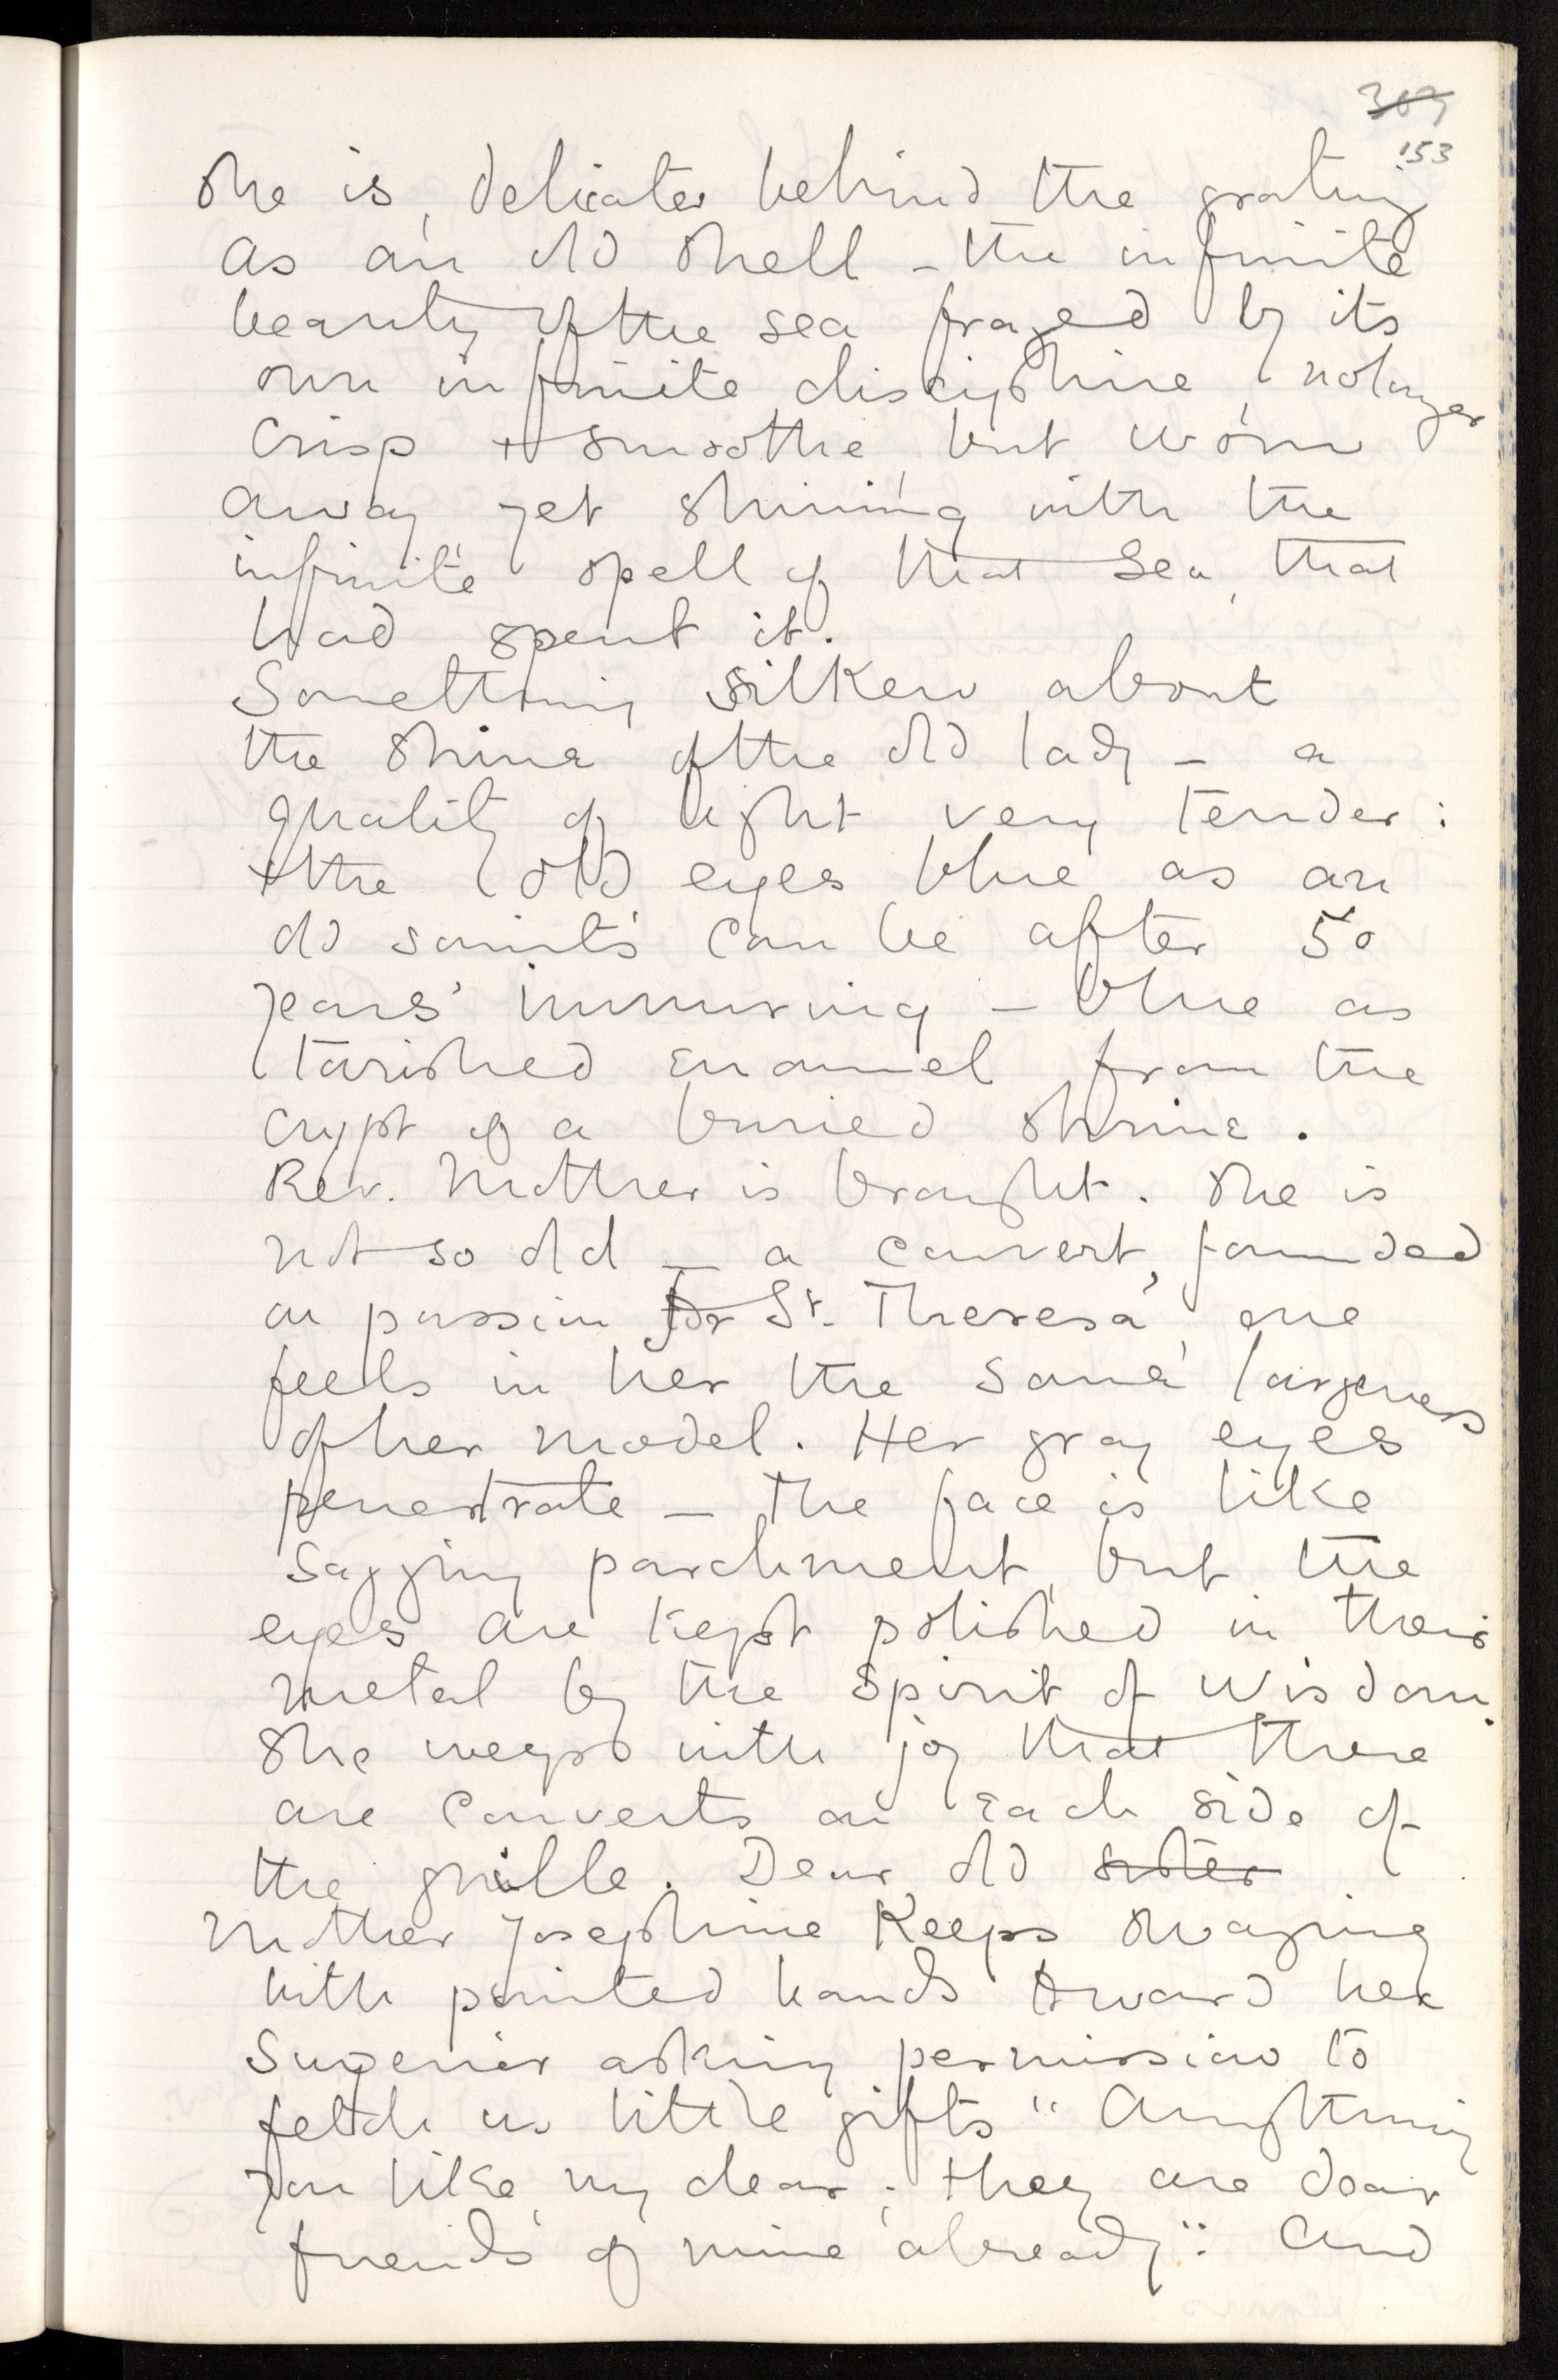 309
153
She is, delicater behind the grating
as an old shell - the infinite
beauty of the sea frazed by its
own infinite discipline, no longer
crisp + smoothe, but worn
away yet shining with the
infinite spell of that sea, that
had spent it.
Something silken about
the shine of the old lady - a
quality of light very tender:
+ the old eyes blue as an
old saint's can be after 50
years' immuring - blue as
tarished enamel from the
crypt of a buried shrine.
Rev. Mother is brought. She is
not so old - a convert, founded
on passion for St. Theresa, one
feels in her the same largeness
of her model. Her gray eyes
penetrate - the face is like
sagging parchment, but the
eyes are kept polished in their
metal by the Spirit of Wisdom.
She weeps with joy that there
are converts on each side of
the grille. Dear old sister
Mother Josephine Keeps swaying
with pointed hands toward her
Superior asking permission to
fetch us little gifts "Anything
you like, my dear; they are dear
friends of mine already": And